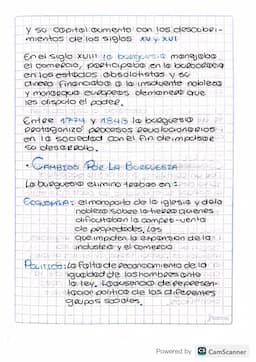 y su capital aumento con los descubri-
mientos de los siglos XV y XVI
En el siglo XVIII la burguesia manejaba
el comercio, participaba en la burocracia
en los estados absolutistas y su
dinero financiaba a la insolvente nobleza
y monarquia europeas, de manera que
les disputo el poder.
Entre 1774 y 1848 la burguesia
protagonizó procesos revolucionarios
en la sociedad con el fin de impulsar
su desarrollo.
• CAMBIOS POR LA BURGUESIA
La burguesia elimino trabas en :
ECONOMIA: el monopolio de la iglesia y de la
nobleza sobre la tierra quienes
dificultaban la compra-venta
de propiedades, las
que impiden la expansion de la
industria y el comercio
POLITICO: la falta de reconocimiento de la
igualdad de los hombres ante
la ley. La ausencia de represen-
tacion politica de los diferentes
grupos sociales.
Powered by CamScanner